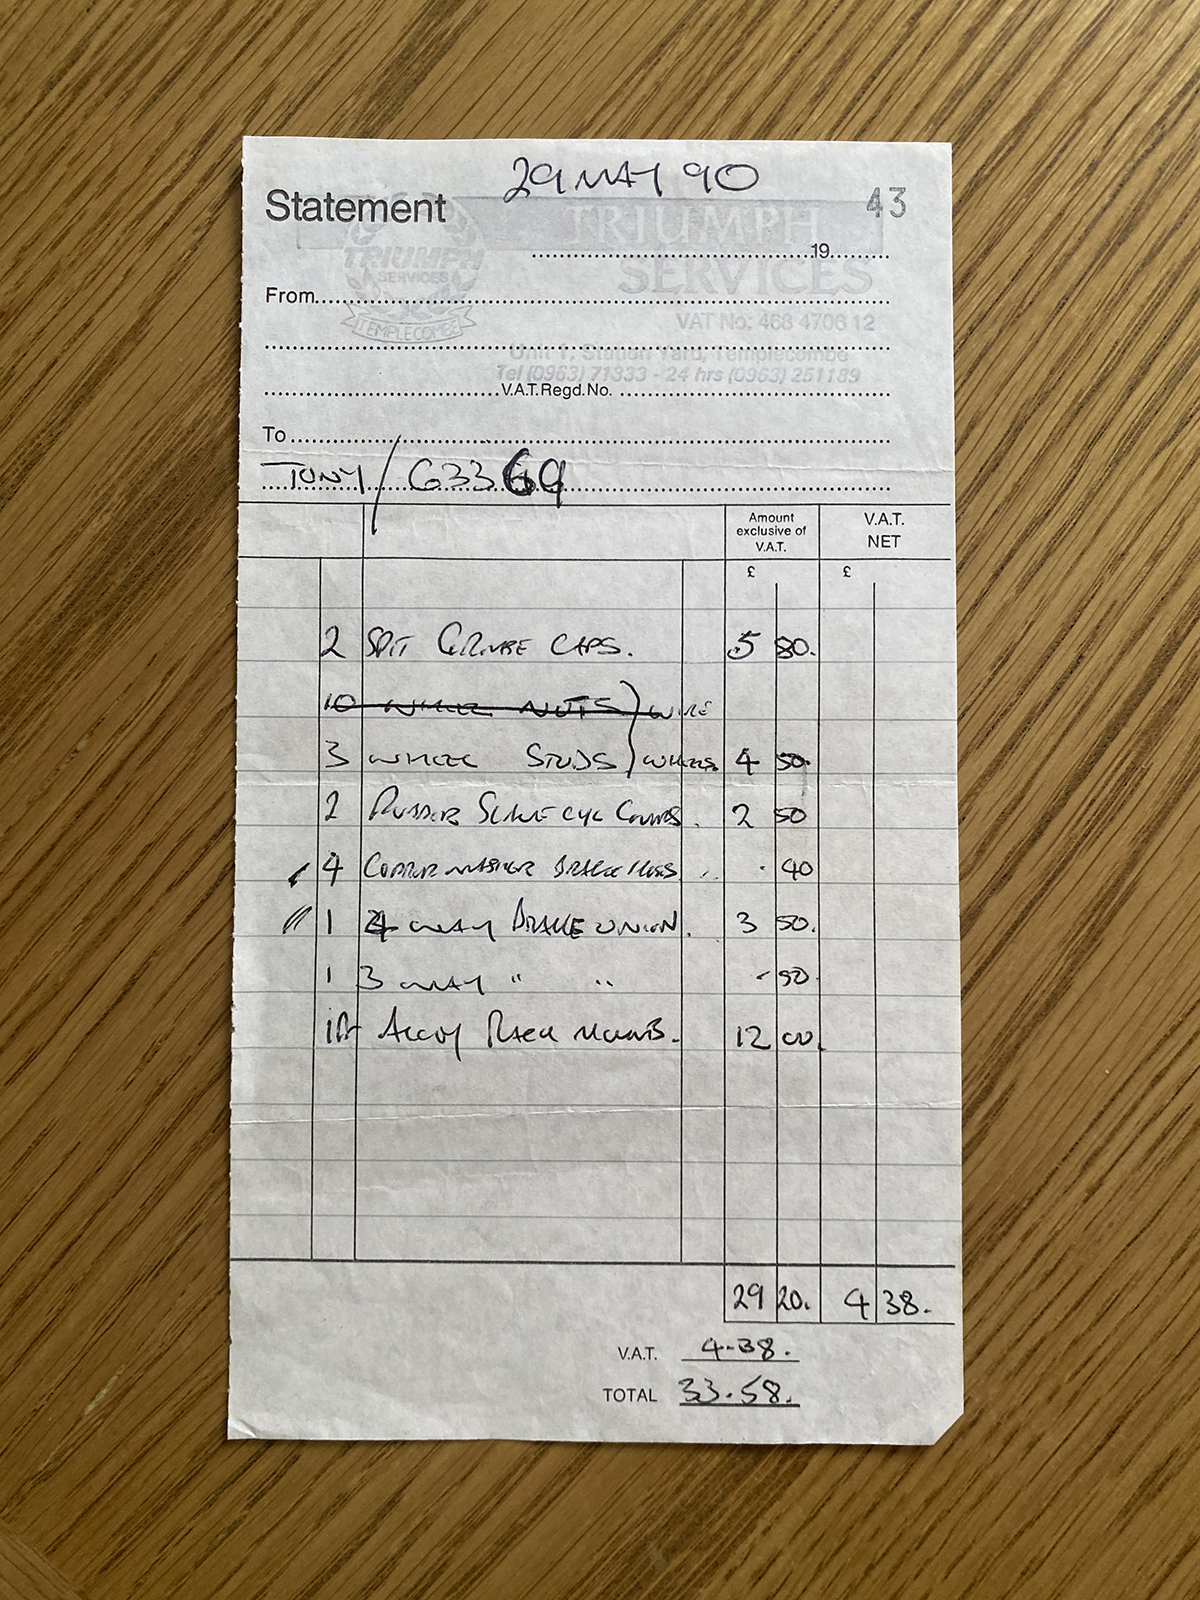 29 MAY 90
Statement
43
TRIUMPH
SERVICES
TRIUMPH
SERVICES
TEMPLECOMBE
19
From
VAT No: 468 4706 12
Unit 1, Station Yard, Templecombe
Tel (0963) 71333 - 24 hrs (0963) 251189
V.A.T. Regd. No.
To
TONY / G3369
Amount exclusive of V.A.T. V.A.T. NET
£ £
2 SPIT GREASE CAPS. 5 80.
10 WHEEL NUTS ) WIRE
3 WHEEL STUDS ) WHEELS 4 50.
2 RUBBER SLAVE CYL COVERS. 2 50
4 COPPER BRAKE 40
1 4 WAY BRAKE UNION. 3 50.
1 3 WAY " " 50.
1 PR ALLOY RACK MOUNTS. 12 00.
29 20. 4 38.
V.A.T. 4.38.
TOTAL 33.58.